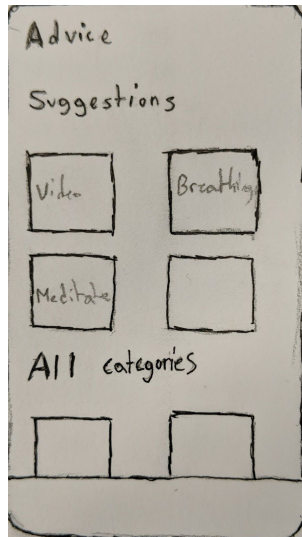 Advice
Suggestions
Video
Breathing
Meditate
All categories